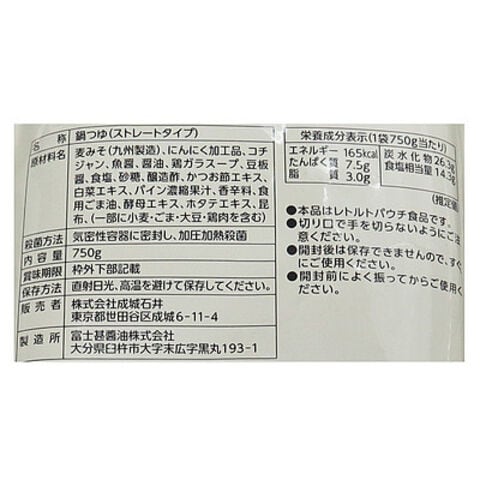 名称 鍋つゆ(ストレートタイプ)
原材料名 麦みそ(九州製造)、にんにく加工品、コチ
ジャン、魚醤、醤油、鶏ガラスープ、豆板
醤、食塩、砂糖、醸造酢、かつお節エキス、
白菜エキス、パイン濃縮果汁、香辛料、
食用ごま油、酵母エキス、ホタテエキス、昆
布、(一部に小麦・ごま・大豆・鶏肉を含む)
殺菌方法 気密性容器に密封し、加圧加熱殺菌
内容量 750g
賞味期限 枠外下部記載
保存方法 直射日光、高温を避けて保存してください。
販売者 株式会社成城石井
東京都世田谷区成城6-11-4
製造所 富士甚醤油株式会社
大分県臼杵市大字末広字黒丸193-1
栄養成分表示(1袋750g当たり)
エネルギー 165kcal 炭水化物 26.3g
たんぱく質 7.5g 食塩相当量 14.3g
脂質 3.0g
(推定値)
●本品はレトルトパウチ食品です。
●切り口で手を切らないようにご注
意ください。
●開封後は保存できませんので、すぐ
にご使用ください。
●開封前によく振ってからご使用く
ださい。